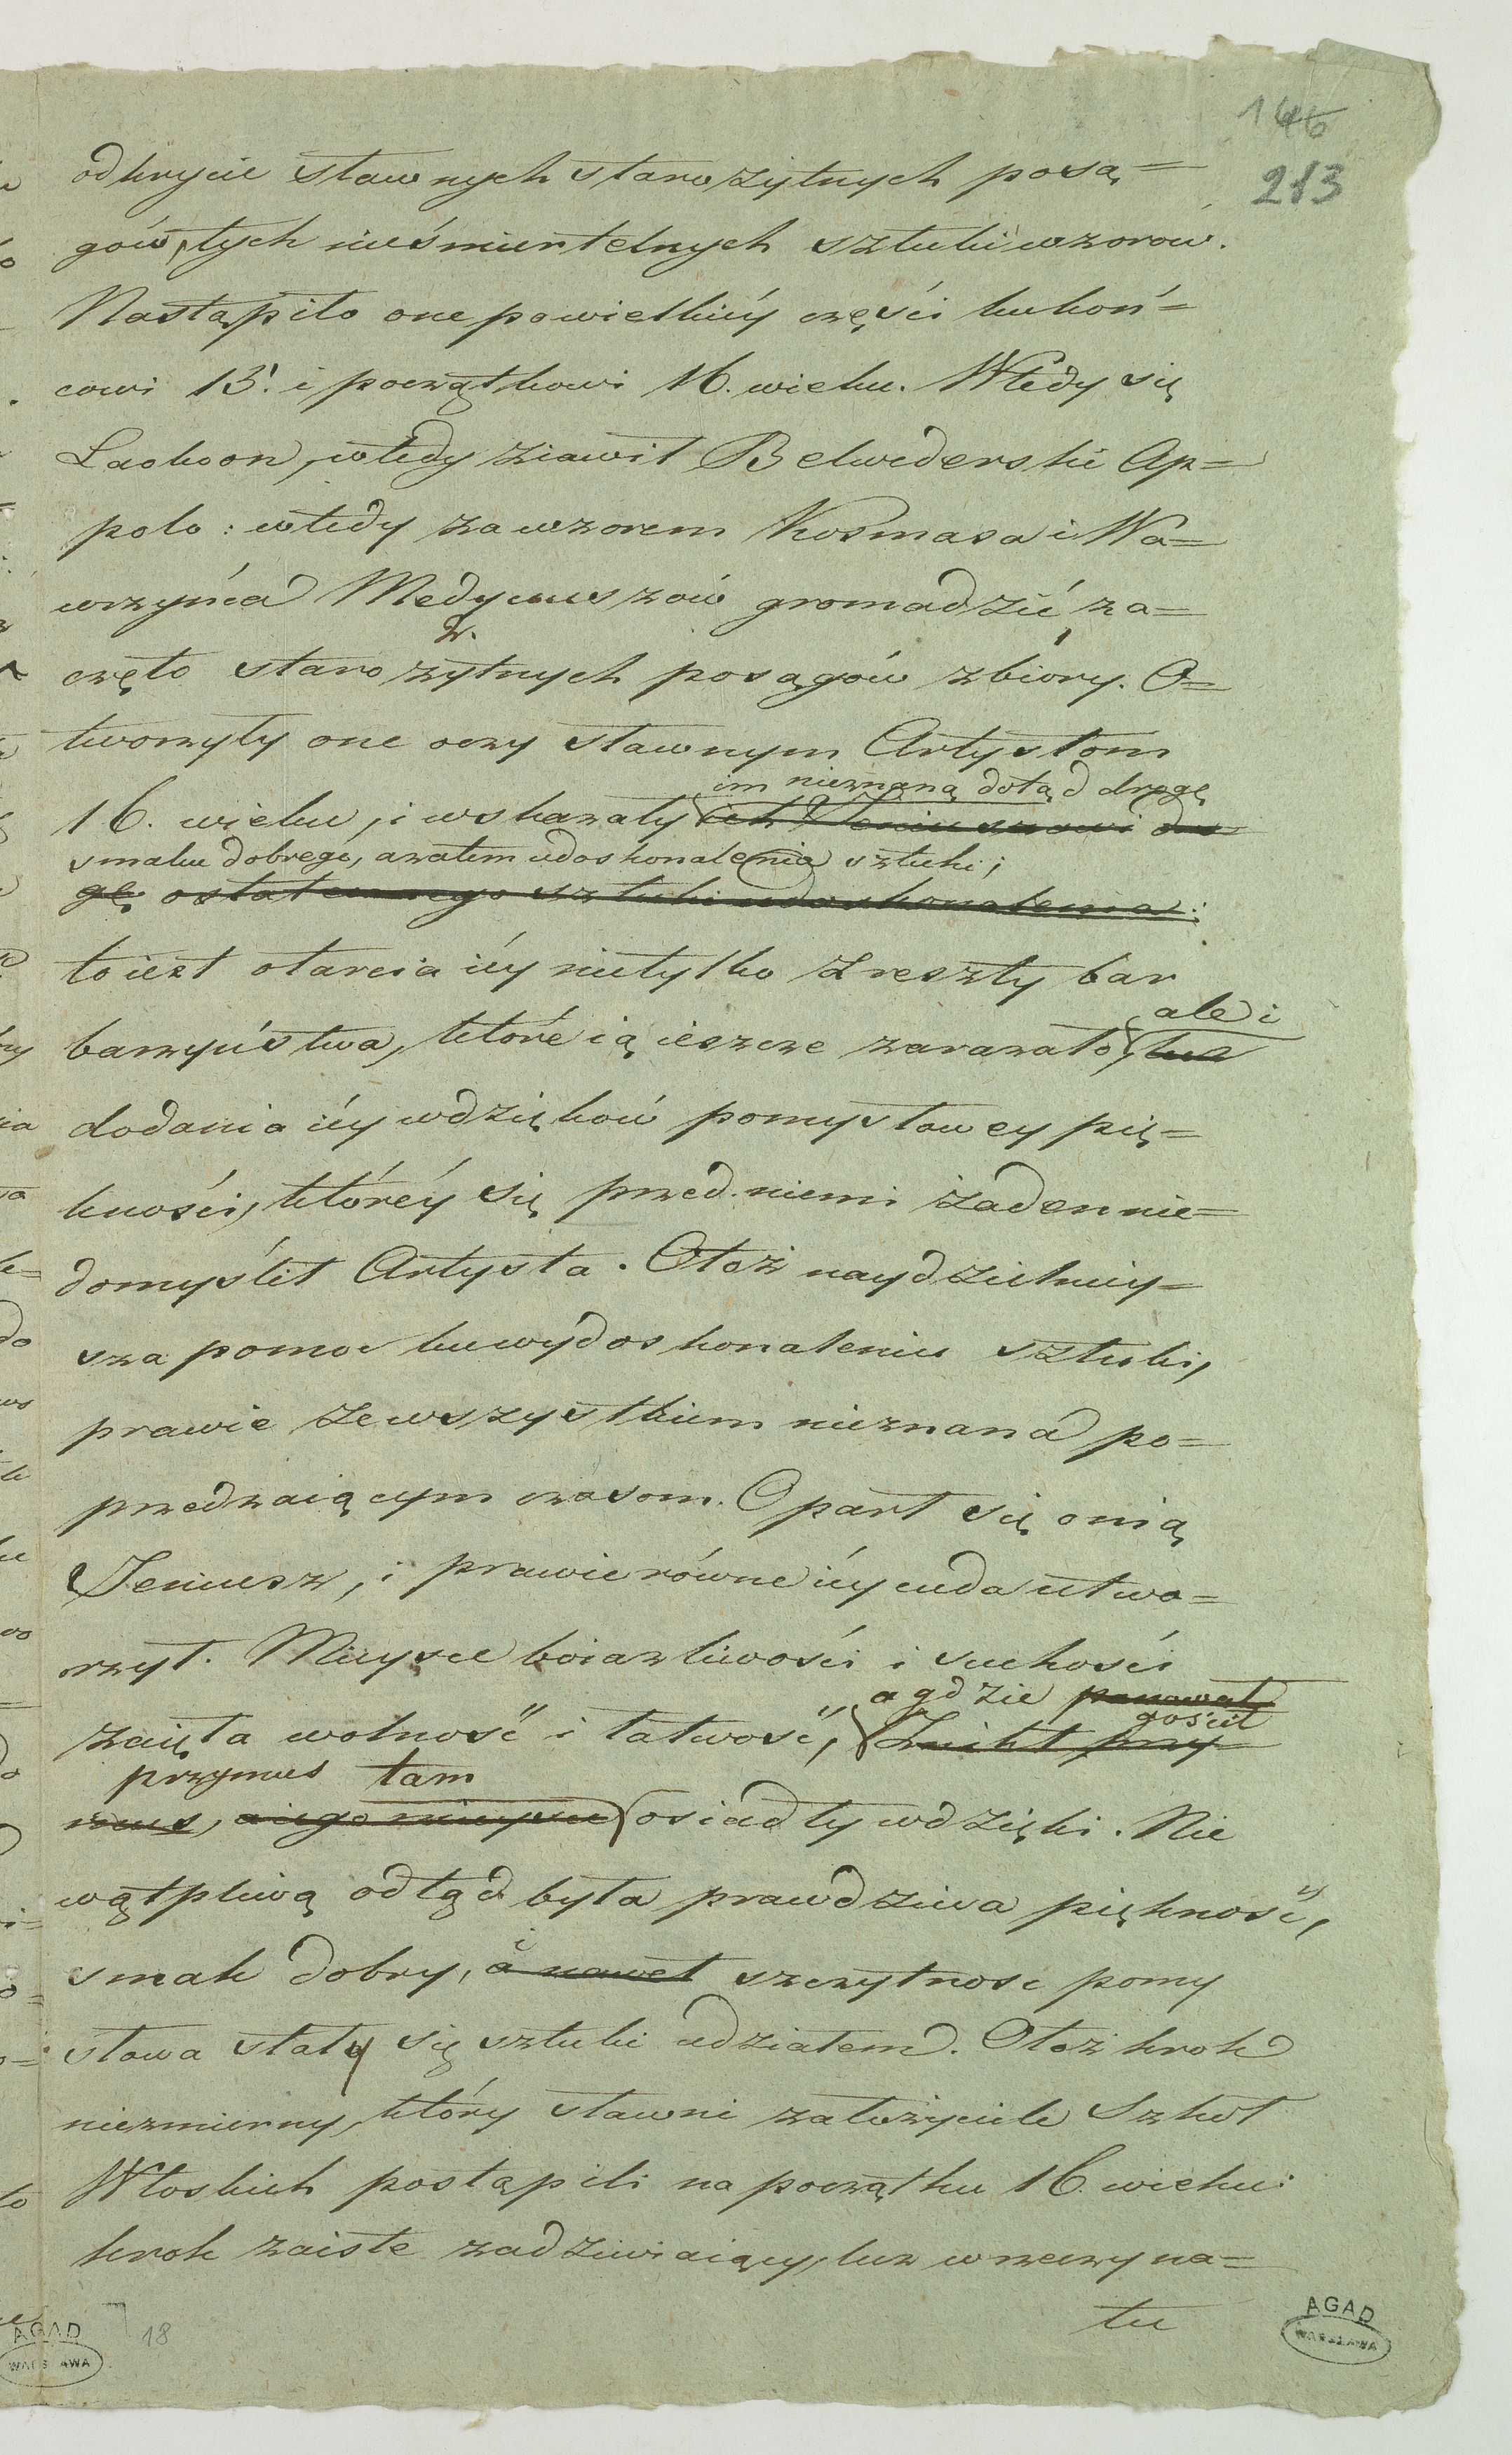 146
213
odkrycie sławnych starożytnych posą=
gów, tych nieśmiertelnych sztuki wzorow.
Nastąpiło one po wielkiéy części ku koń=
cowi 15. i początkowi 16. wieku. Wtedy się
Laokoon, wtedy ziawił Belwederski Ap=
polo: wtedy za wzorem Kosmasa i Wa=
wrzyńca Medyceuszów gromadzić za=
ż.
częto starożytnych posągów zbióry. O=
tworzyły one oczy sławnym Artystom
im nieznaną dotąd drogę
16. wieku, i wskazały ich Jeniuszowi dro
smaku dobrego, azatem udoskonalenia sztuki;
gę ostatecznego sztuki udoskonalenia:
to iest otarcia iéy nietylko z reszty bar
ale i
barzyństwa, które ią ieszcze zarażało, lecz
dodania iéy wdzięków pomysłowey pię=
kności, któréy się przed niemi żaden nie=
domyślił Artysta. Otoż naydzielniey=
sza pomoc ku wydoskonaleniu sztuki,
prawie ze wszystkiem nieznana po=
przedzaiącym czasom. Oparł się o nią
Jeniusz, i prawie równe iéy cuda utwo=
rzył. Mieysce boiaźliwości i suchości
a gdzie panował
gościł
zaięła wolność i łatwość, Znikł przy=
przymus tam
mus, a iego mieysce osiadły wdzięki. Nie
wątpliwą odtąd była prawdziwa piękność,
i
smak dobry, a nawet szczytnosc pomy
słowa stały się sztuki udziałem. Otoż krok
niezmierny, który sławni założyciele Szkoł
Włoskich postąpili na początku 16. wieku:
krok zaiste zadziwiaiący, lecz w rzeczy na=
tu
18
AGAD
WARSZAWA
AGAD
WARSZAWA